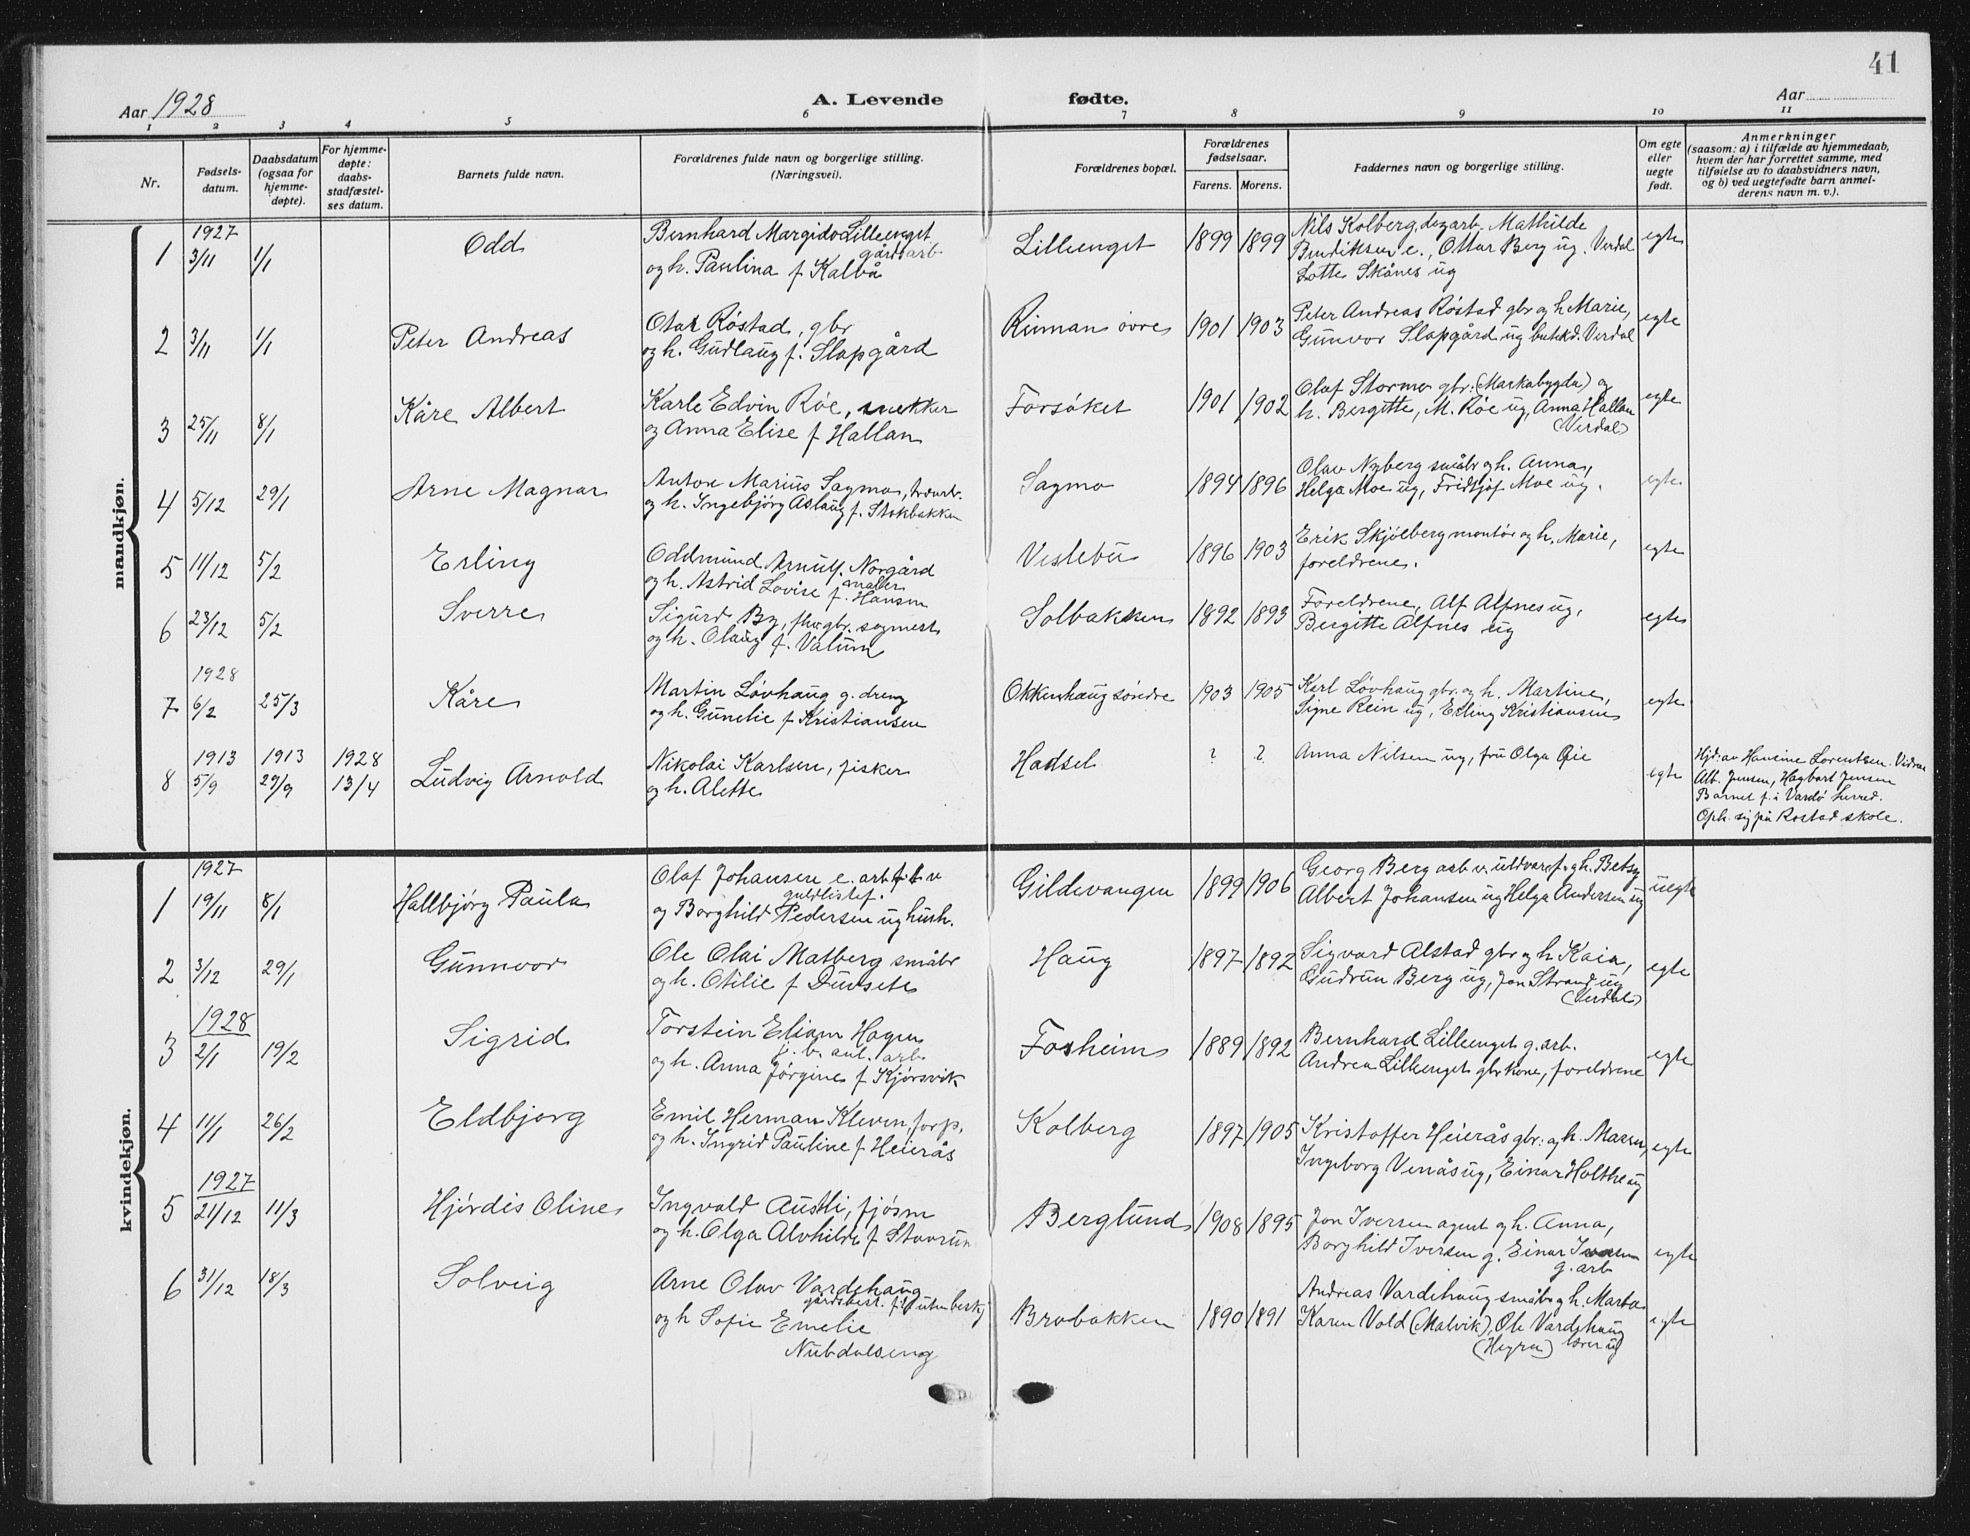 41
Aar 1928
A. Levende
fødte.
Aar
1 2 3 4 5 6 7 8 9 10 11
Nr.
Fødsels-
datum.
Daabsdatum
(ogsaa for
hjemme-
døpte).
For hjemme-
døpte:
daabs-
stadfæstel-
ses datum.
Barnets fulde navn.
Forældrenes fulde navn og borgerlige stilling.
(Næringsvei).
Forældrenes bopæl.
Forældrenes
fødselsaar.
Farens. Morens.
Faddernes navn og borgerlige stilling.
Om egte
eller
uegte
født.
Anmerkninger
(saasom: a) i tilfælde av hjemmedaab,
hvem der har forrettet samme, med
tilføielse av to daabsvidners navn,
og b) ved uegtefødte barn anmel-
derens navn m. v.).
mandkjøn.
1927
1 3/11 1/1 Odd
Bernhard Margido Lillenget
gårdsarb.
og h. Paulina f Kalbå
Lillenget 1899 1899
Nils Kolberg, dagarb. Mathilde
Bendiksen e., Ottar Berg ug. Verdal
Lotte Skånes ug
egte
2 3/11 1/1 Peter Andreas
Otar Røstad, gbr
og h. Gudlaug f. Slapgård
Rinnan øvre 1901 1903
Peter Andreas Røstad gbr og h Marie,
Gunvor Slapgård ug butikd. Verdal
egte
3 25/11 8/1 Kåre Albert
Karle Edvin Røe, snekker
og Anna Elise f Hallan
Forsøket 1901 1902
Olaf Stormo gbr. (Markabygda) og
h. Bergitte, M. Røe ug, Anna Hallan
(Verdal)
egte
4 5/12 29/1 Arne Magnar
Anton Marius Sagmo,
og h. Ingebjørg Aslaug f. Stokbakken
Sagmo 1894 1896
Olav Nyberg småbr og h. Anna,
Helga Moe ug, Fridtjof Moe ug.
egte
5 11/12 5/2 Erling
Oddmund Arnulf Norgård
maler
og h. Astrid Lovise f. Hansen
Vislebu 1896 1903
Erik Skjølberg montør og h. Marie,
foreldrene.
egte
6 23/12 5/2 Sverre
Sigurd By, fhv. gbr. sagmest
og h. Olaug f. Valum
Solbakken 1892 1893
Foreldrene, Alf Alfnes ug,
Bergitte Alfnes ug
egte
1928
7 6/2 25/3 Kåre
Martin Løvhaug g. dreng
og h. Gunelie f Kristiansen
Okkenhaug søndre 1903 1905
Karl Løvhaug gbr. og h. Martine,
Signe Rein ug, Erling Kristiansen
egte
1913 1913 1928
8 5/9 29/9 13/4 Ludvig Arnold
Nikolai Karlsen, fisker
og h. Alette
Hadsel ? ?
Anna Nilsen ug, fru Olga Øie
egte
Hjd. av Hansine Lorentsen. Vidner
Alb. Jensen, Hagbart Jensen
Barnet f. i Vardø herred.
Oph. sig på Rostad skole.
kvindekjøn.
1927
1 19/11 8/1 Hallbjørg Paula
Olaf Johansen e. arb.
guldlistef.
og Borghild Pedersen ug hush.
Gildevangen 1899 1906
Georg Berg arb v. uldvaref. og h. Betsy
Albert Johansen ug Helga Andersen ug
uegte
2 3/12 29/1 Gunnvor
Ole Olai Matberg småbr
og h. Otilie f Dunsete
Haug 1897 1892
Sigvard Alstad gbr og h Kaia,
Gudrun Berg ug, Jon Strand ug
(Verdal)
egte
1928
3 2/1 19/2 Sigrid
Torstein Eliam Hagen
j. b. anl. arb.
og h. Anna Jørgine f Kjørsvik
Fosheim 1889 1892
Bernhard Lillenget g. arb.
Andrea Lillenget gbrkone, foreldrene
egte
4 11/1 26/2 Eldbjørg
Emil Herman Kleven forp.
og h. Ingrid Pauline f Heierås
Kolberg 1897 1905
Kristoffer Heierås gbr. og h. Maren,
Ingeborg Venås ug, Einar Holthe ug
egte
1927
5 21/12 11/3 Hjørdis Oline
Ingvald Austli, fjøsm
og h. Olga Alvhilde f Stavrun
Berglund 1908 1895
Jon Iversen agent og h. Anna,
Borghild Iversen g. Einar Iversen
g. arb
egte
6 31/12 18/3 Solveig
Arne Olav Vardehaug
gårdsbest.
og h Sofie Emelie
Nubdalseng
Brobakken 1890 1891
Andreas Vardehaug småbr og h. Marta
Karen Vold (Malvik), Ole Vardehaug
(Hegra)
egte